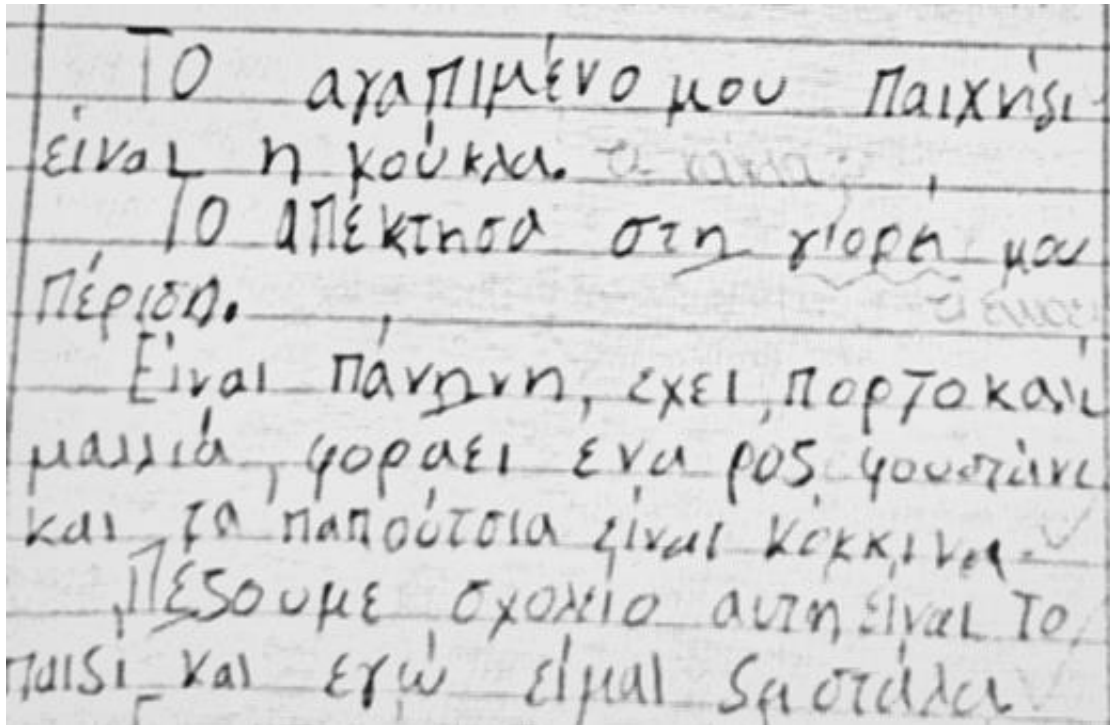 Το αγαπιμένο μου Παιχνήδι
είναι η κούκλα.
Το απέκτησα στη γιορή μου
Πέριση.
Είναι Πάνηνη, έχει, πορτοκαλι
μαλλιά, φοράει ένα ροζ φουστάνι
και τα παπούτσια είναι κόκκινα.
Πέζουμε σχολείο αυτη είναι το
παιδί και εγώ είμαι δαστάλα